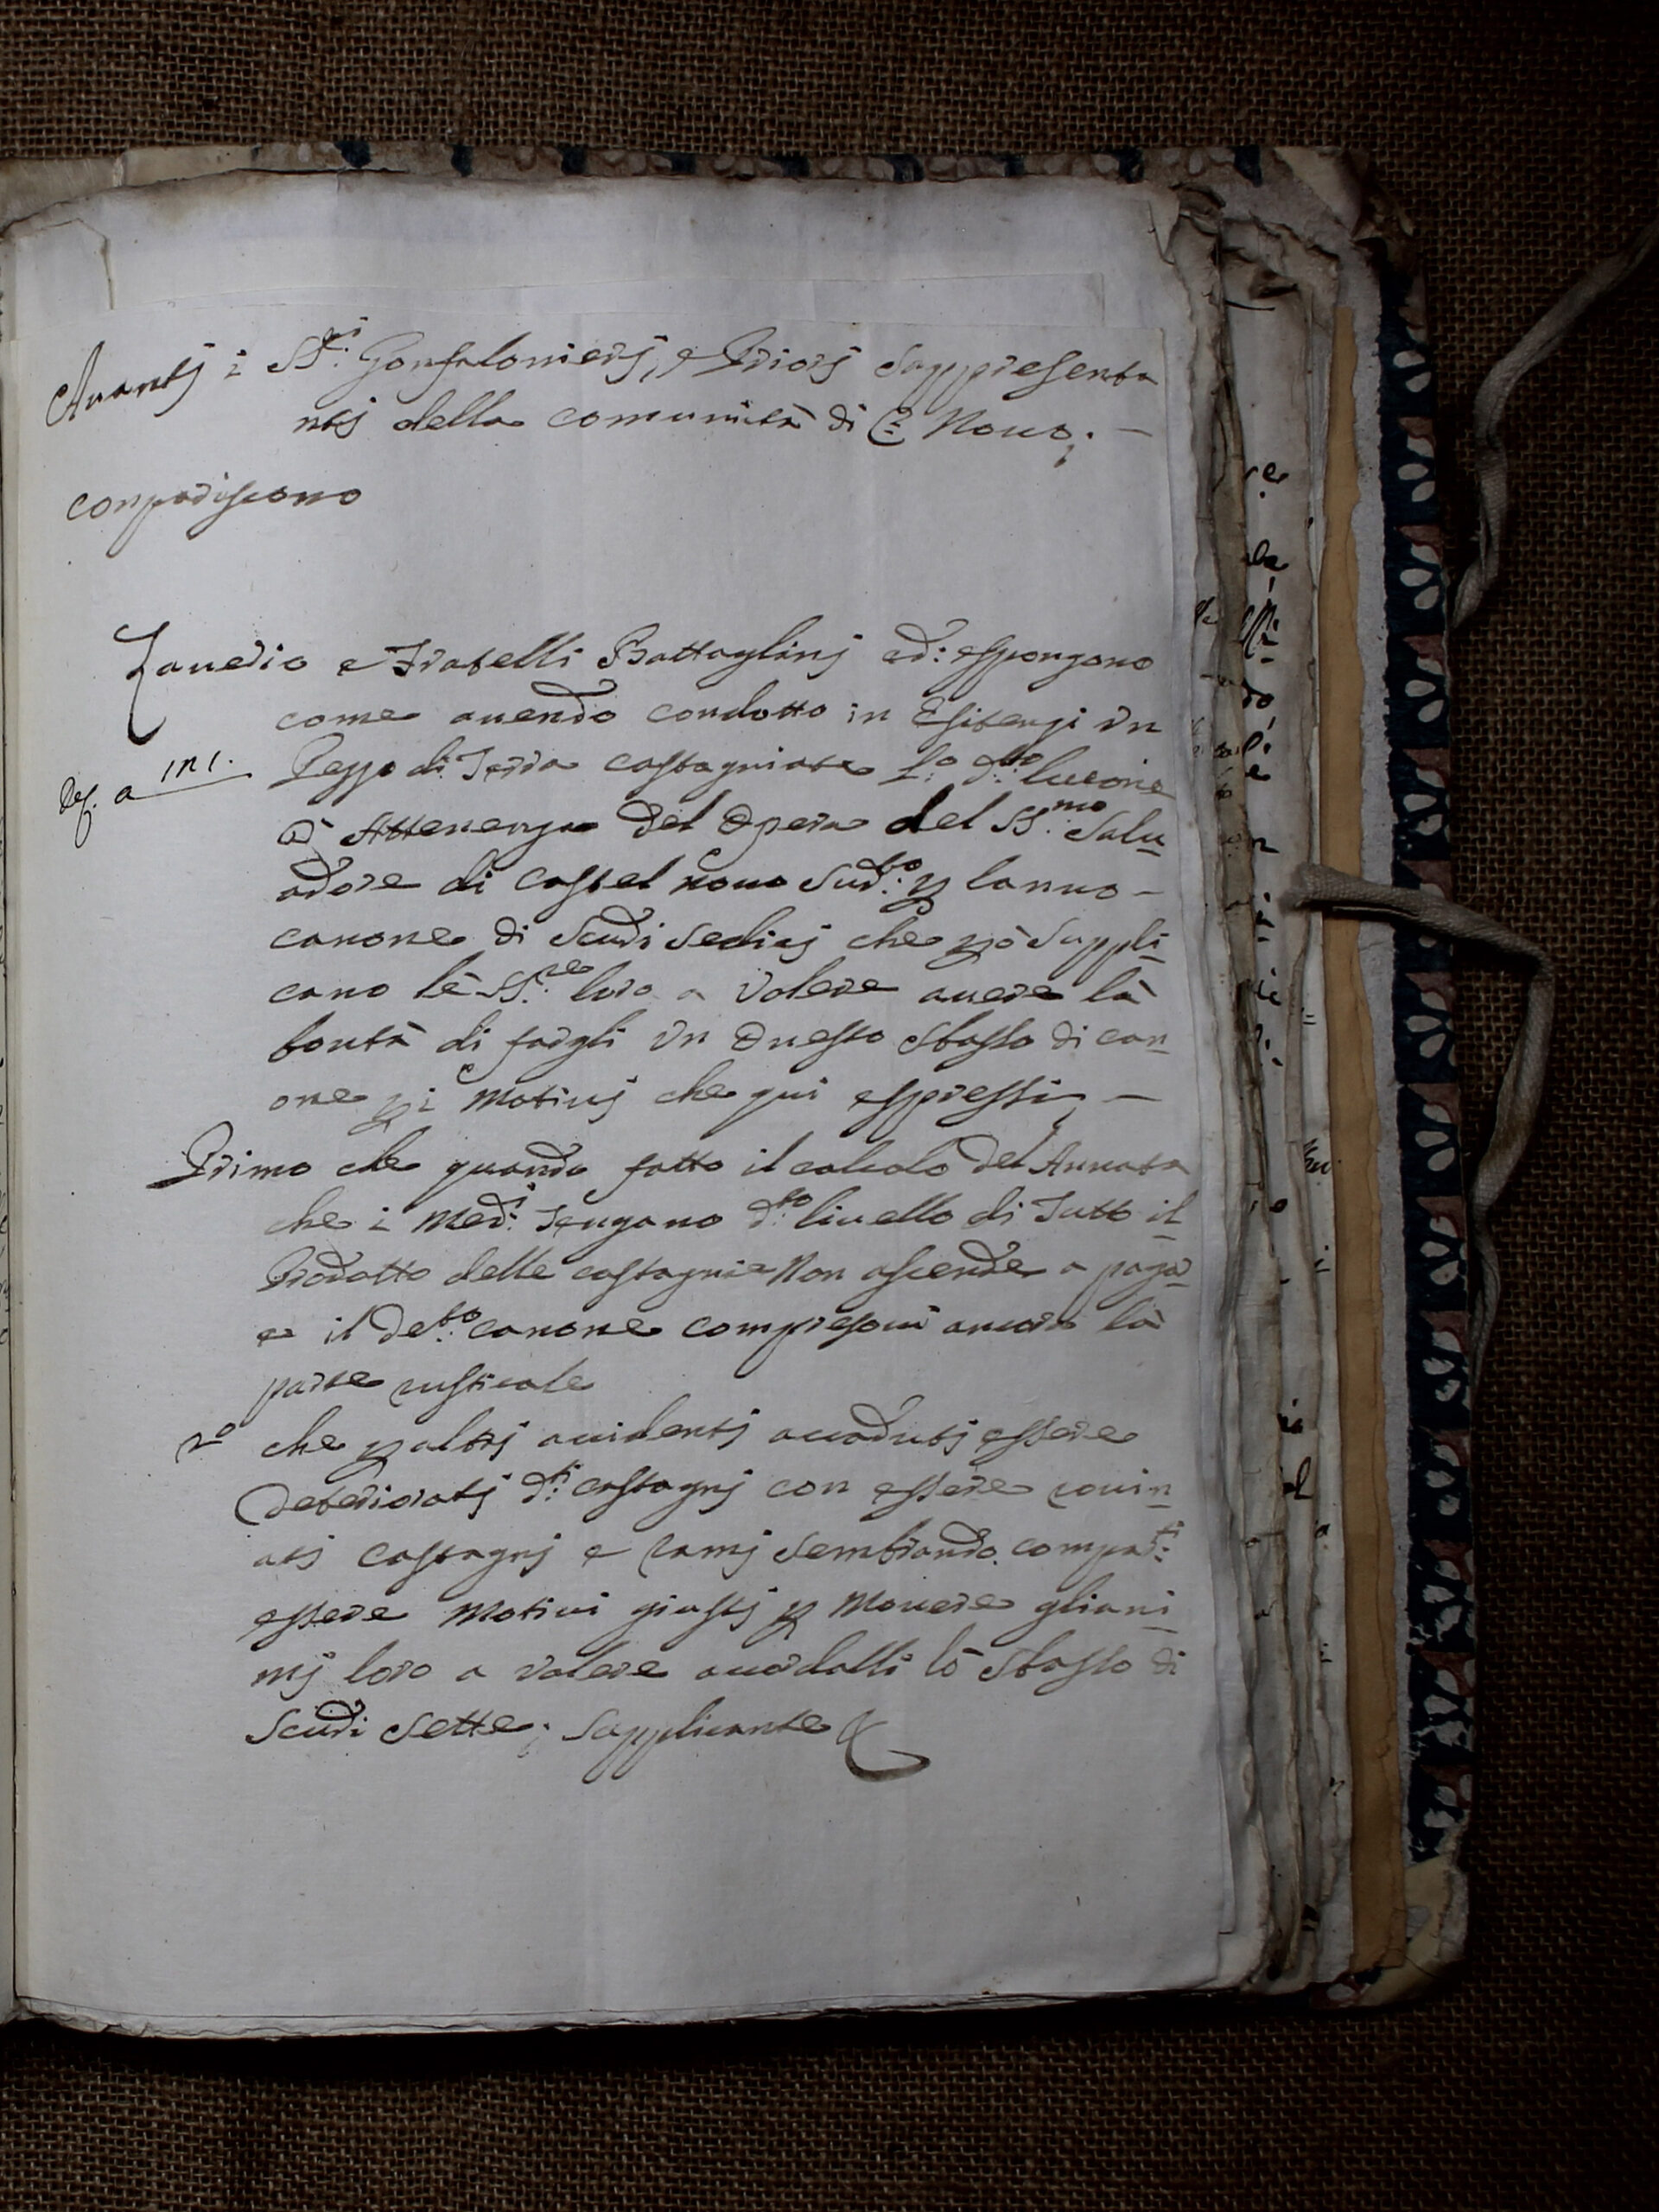 Avantj i SS.ri Gonfalonierj, e Priorj Rappresenta
ntj della comunità di C: Novo. —
conpariscono
Zaverio e Fratelli Battaglinj ed: espongono
come avendo condotto in Esitenzi un
Pezzo di Terra castagniata l.o d.to lucone
Def. a 121.
à Attenenza del Opera del SS.mo Salv
adore di Castel novo Sud.to p lanno –
canone di Scudi Sedicj che p ò Suppli
cano le SS.rie loro a volere avere là
bontà di fargli un onesto Sbasso di can
one p i Motivj che qui espressi, —
Primo che quando fatto il calcolo del Annata
che i Med.i Tengano d.to livello di Tutto il
Prodotto delle castagnie Non ascende a pagar
e il de.to canone compresovi ancora là
parte rusticale
2.o che p altrj accidentj accadutj essere
deterioratj d.ti castagnj con essere rovin
atj castagnj e ramj Sembrando compar.ti
essere Motivi giustj p Movere gliani
mj loro a volere accordalli lò Sbasso di
Scudi Sette; Supplicante &